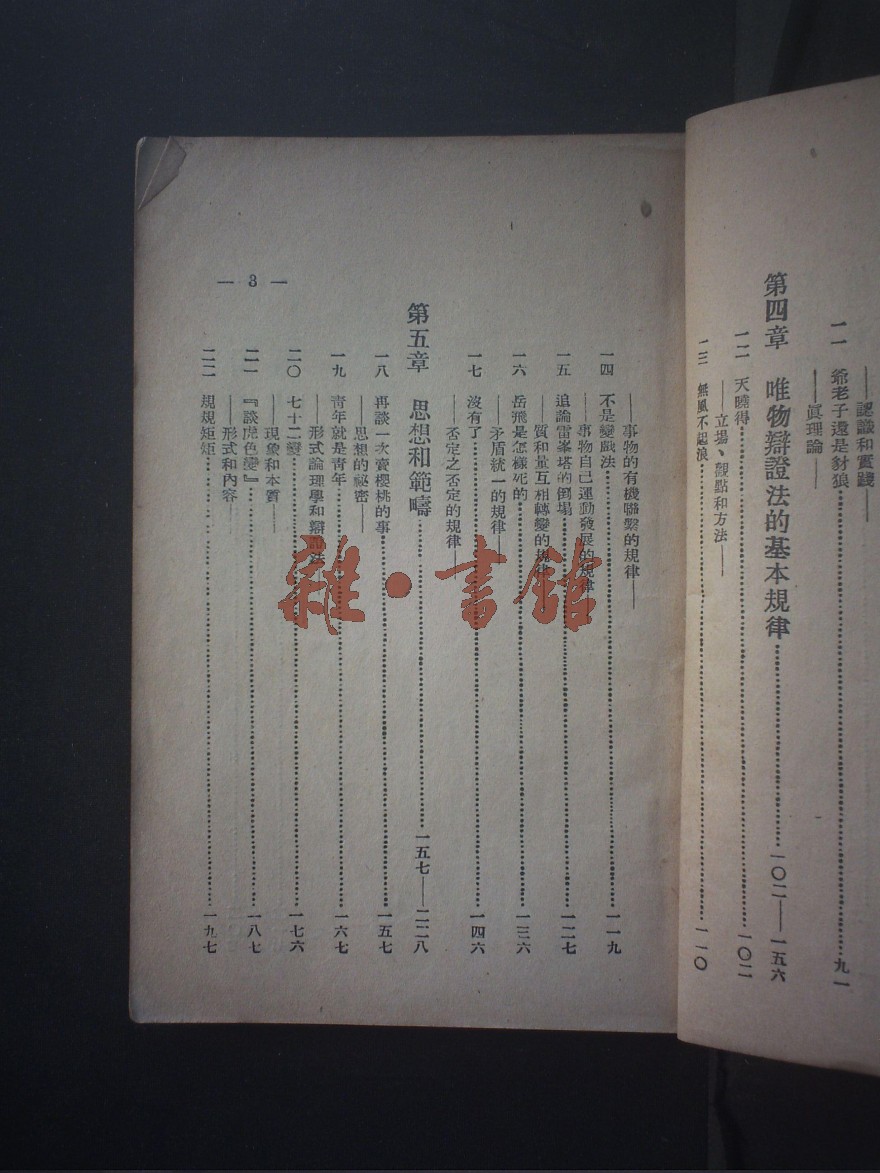 ——認識和實踐——
一一 爺老子還是豺狼……九一
——眞理論——
第四章 唯物辯證法的基本規律……一〇二——一五六
一二 天曉得……一〇二
——立場、觀點和方法——
一三 無風不起浪……一一〇
——事物的有機聯繫的規律——
一四 不是變戲法……一一九
——事物自己運動發展的規律——
一五 追論雷峯塔的倒塌……一二七
——質和量互相轉變的規律——
一六 岳飛是怎樣死的……一三六
——矛盾統一的規律——
一七 沒有了……一四六
——否定之否定的規律——
第五章 思想和範疇……一五七——二二八
一八 再談一次賣櫻桃的事……一五七
——思想的祕密——
一九 青年就是青年……一六七
——形式論理學和辯證法——
二〇 七十二變……一七六
——現象和本質——
二一 『談虎色變』……一八七
——形式和內容——
二二 規規矩矩……一九七
— 3 —
雜·書館